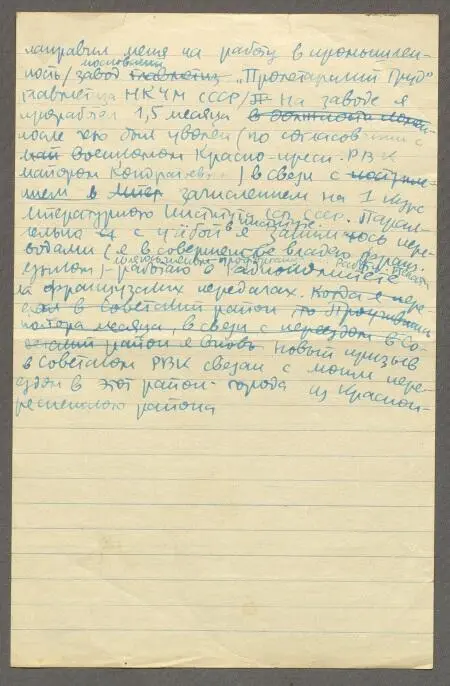 направил меня на работу в промышлен-
пословами
ность/ завод главметиз „Пролетарский Труд"
главметиза НКЧМ СССР/ На заводе я
проработал 1,5 месяца в должности
после чего был уволен (по согласованию с
военкомом Красно-пресн. РВК
майором Кондратьевым) в связи с поступле-
нием в Литер зачислением на 1 курс
Литературного Института ССП СССР. Парал-
в институте
лельно с учёбой я занимаюсь пере-
водами (я в совершенстве владею франц.
языком) – работаю в Радиокомитете
на французских передачах. Когда я пере-
ехал в Советский район Проучившись
полтора месяца, в связи с переездом в Со-
ветский район я вновь Новый призыв
в Советском РВК связан с моим пере-
ездом в этот район города из Красно-
пресненского района